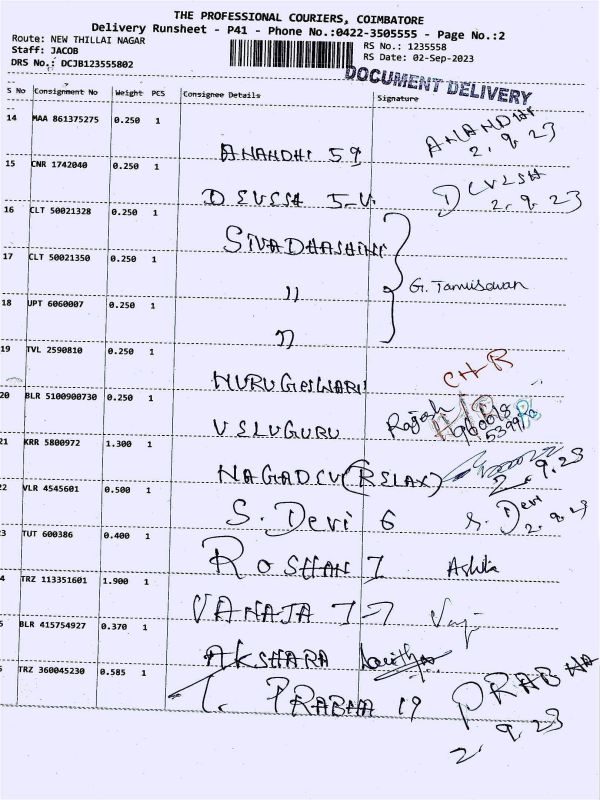 THE PROFESSIONAL COURIERS, COIMBATORE
Delivery Runsheet - P41 - Phone No.:0422-3505555 - Page No.:2
Route: NEW THILLAI NAGAR RS No.: 1235558
Staff: JACOB RS Date: 02-Sep-2023
DRS No.: DCJB123555802
DOCUMENT DELIVERY
S No Consignment No Weight PCS Consignee Details Signature
14 MAA 861375275 0.250 1 ANANDHI 59 ANANDHI
2.9.23
15 CNR 1742040 0.250 1 DEVESH 5-V. DEVESH
2.9.23
16 CLT 50021328 0.250 1 SIVADHASHINI
17 CLT 50021350 0.250 1 " G. Tamilselvan
18 UPT 6060007 0.250 1 "
19 TVL 2590810 0.250 1 MURUGESWARI
20 BLR 5100900730 0.250 1 VELUGURU Rajesh
21 KRR 5800972 1.300 1 NAGADEV (RELAX) 2.9.23
22 VLR 4545601 0.500 1 S. Devi 6 S. Devi
2.9.23
3 TUT 600386 0.400 1 ROSHAN I
4 TRZ 113351601 1.900 1 VANAJA 77
5 BLR 415754927 0.370 1 AKSHARA
TRZ 360045230 0.585 1 PRABHA 19 PRABHA
2.9.23